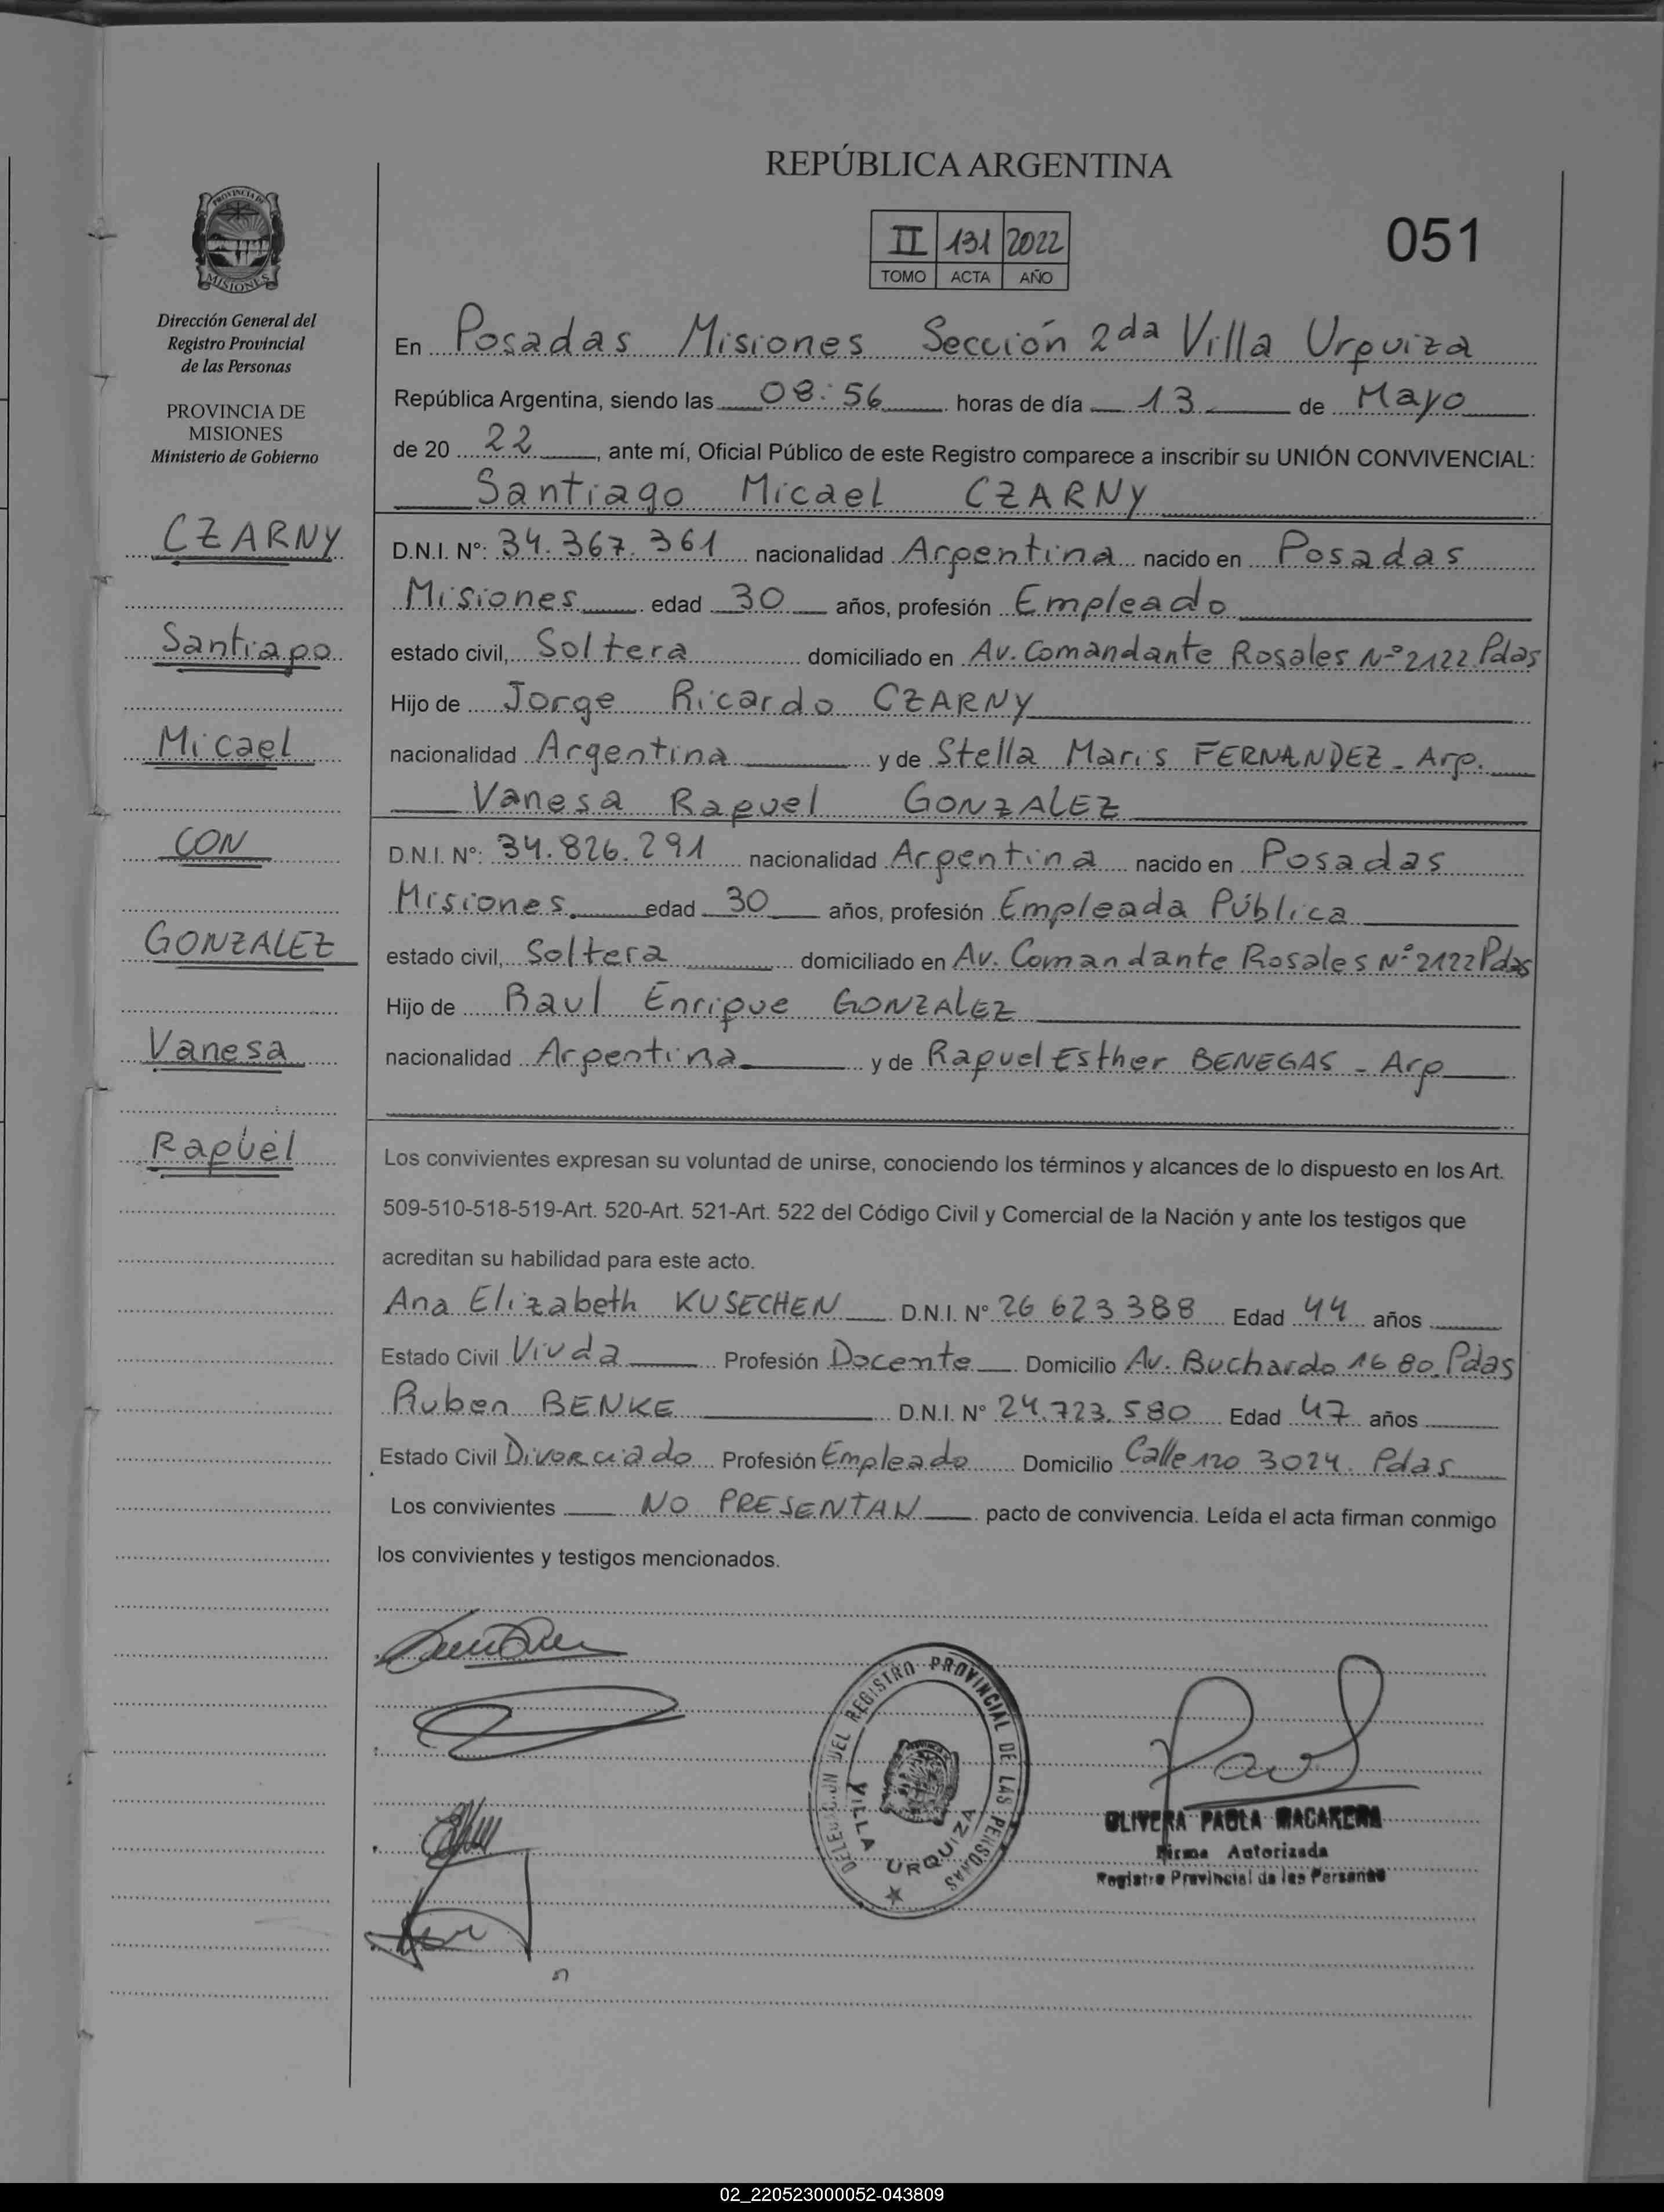 REPÚBLICA ARGENTINA
II 131 2022
TOMO ACTA AÑO
051
PROVINCIA DE
MISIONES
Dirección General del
Registro Provincial
de las Personas
PROVINCIA DE
MISIONES
Ministerio de Gobierno
CZARNY
Santiago
Micael
CON
GONZALEZ
Vanesa
Raquel
En Posadas Misiones Sección 2da Villa Urquiza
República Argentina, siendo las 08:56 horas de día 13 de Mayo
de 20 22, ante mí, Oficial Público de este Registro comparece a inscribir su UNIÓN CONVIVENCIAL:
Santiago Micael CZARNY
D.N.I. N°: 34.367.361 nacionalidad Argentina nacido en Posadas
Misiones edad 30 años, profesión Empleado
estado civil, Soltera domiciliado en Av. Comandante Rosales N° 2122 Pdas
Hijo de Jorge Ricardo CZARNY
nacionalidad Argentina y de Stella Maris FERNANDEZ - Arg.
Vanesa Raquel GONZALEZ
D.N.I. N°: 34.826.291 nacionalidad Argentina nacido en Posadas
Misiones edad 30 años, profesión Empleada Pública
estado civil, Soltera domiciliado en Av. Comandante Rosales N° 2122 Pdas
Hijo de Raul Enrique GONZALEZ
nacionalidad Argentina y de Raquel Esther BENEGAS - Arg
Los convivientes expresan su voluntad de unirse, conociendo los términos y alcances de lo dispuesto en los Art.
509-510-518-519-Art. 520-Art. 521-Art. 522 del Código Civil y Comercial de la Nación y ante los testigos que
acreditan su habilidad para este acto.
Ana Elizabeth KUSECHEN D.N.I. N° 26 623 388 Edad 44 años
Estado Civil Viuda Profesión Docente Domicilio Av. Buchardo 1680. Pdas
Ruben BENKE D.N.I. N° 24.723.580 Edad 47 años
Estado Civil Divorciado Profesión Empleado Domicilio Calle 120 3024. Pdas
Los convivientes NO PRESENTAN pacto de convivencia. Leída el acta firman conmigo
los convivientes y testigos mencionados.
DELEGACION DEL REGISTRO PROVINCIAL DE LAS PERSONAS
VILLA URQUIZA
OLIVERA PAOLA MACARENA
Firma Autorizada
Registro Provincial de las Personas
02_220523000052-043809